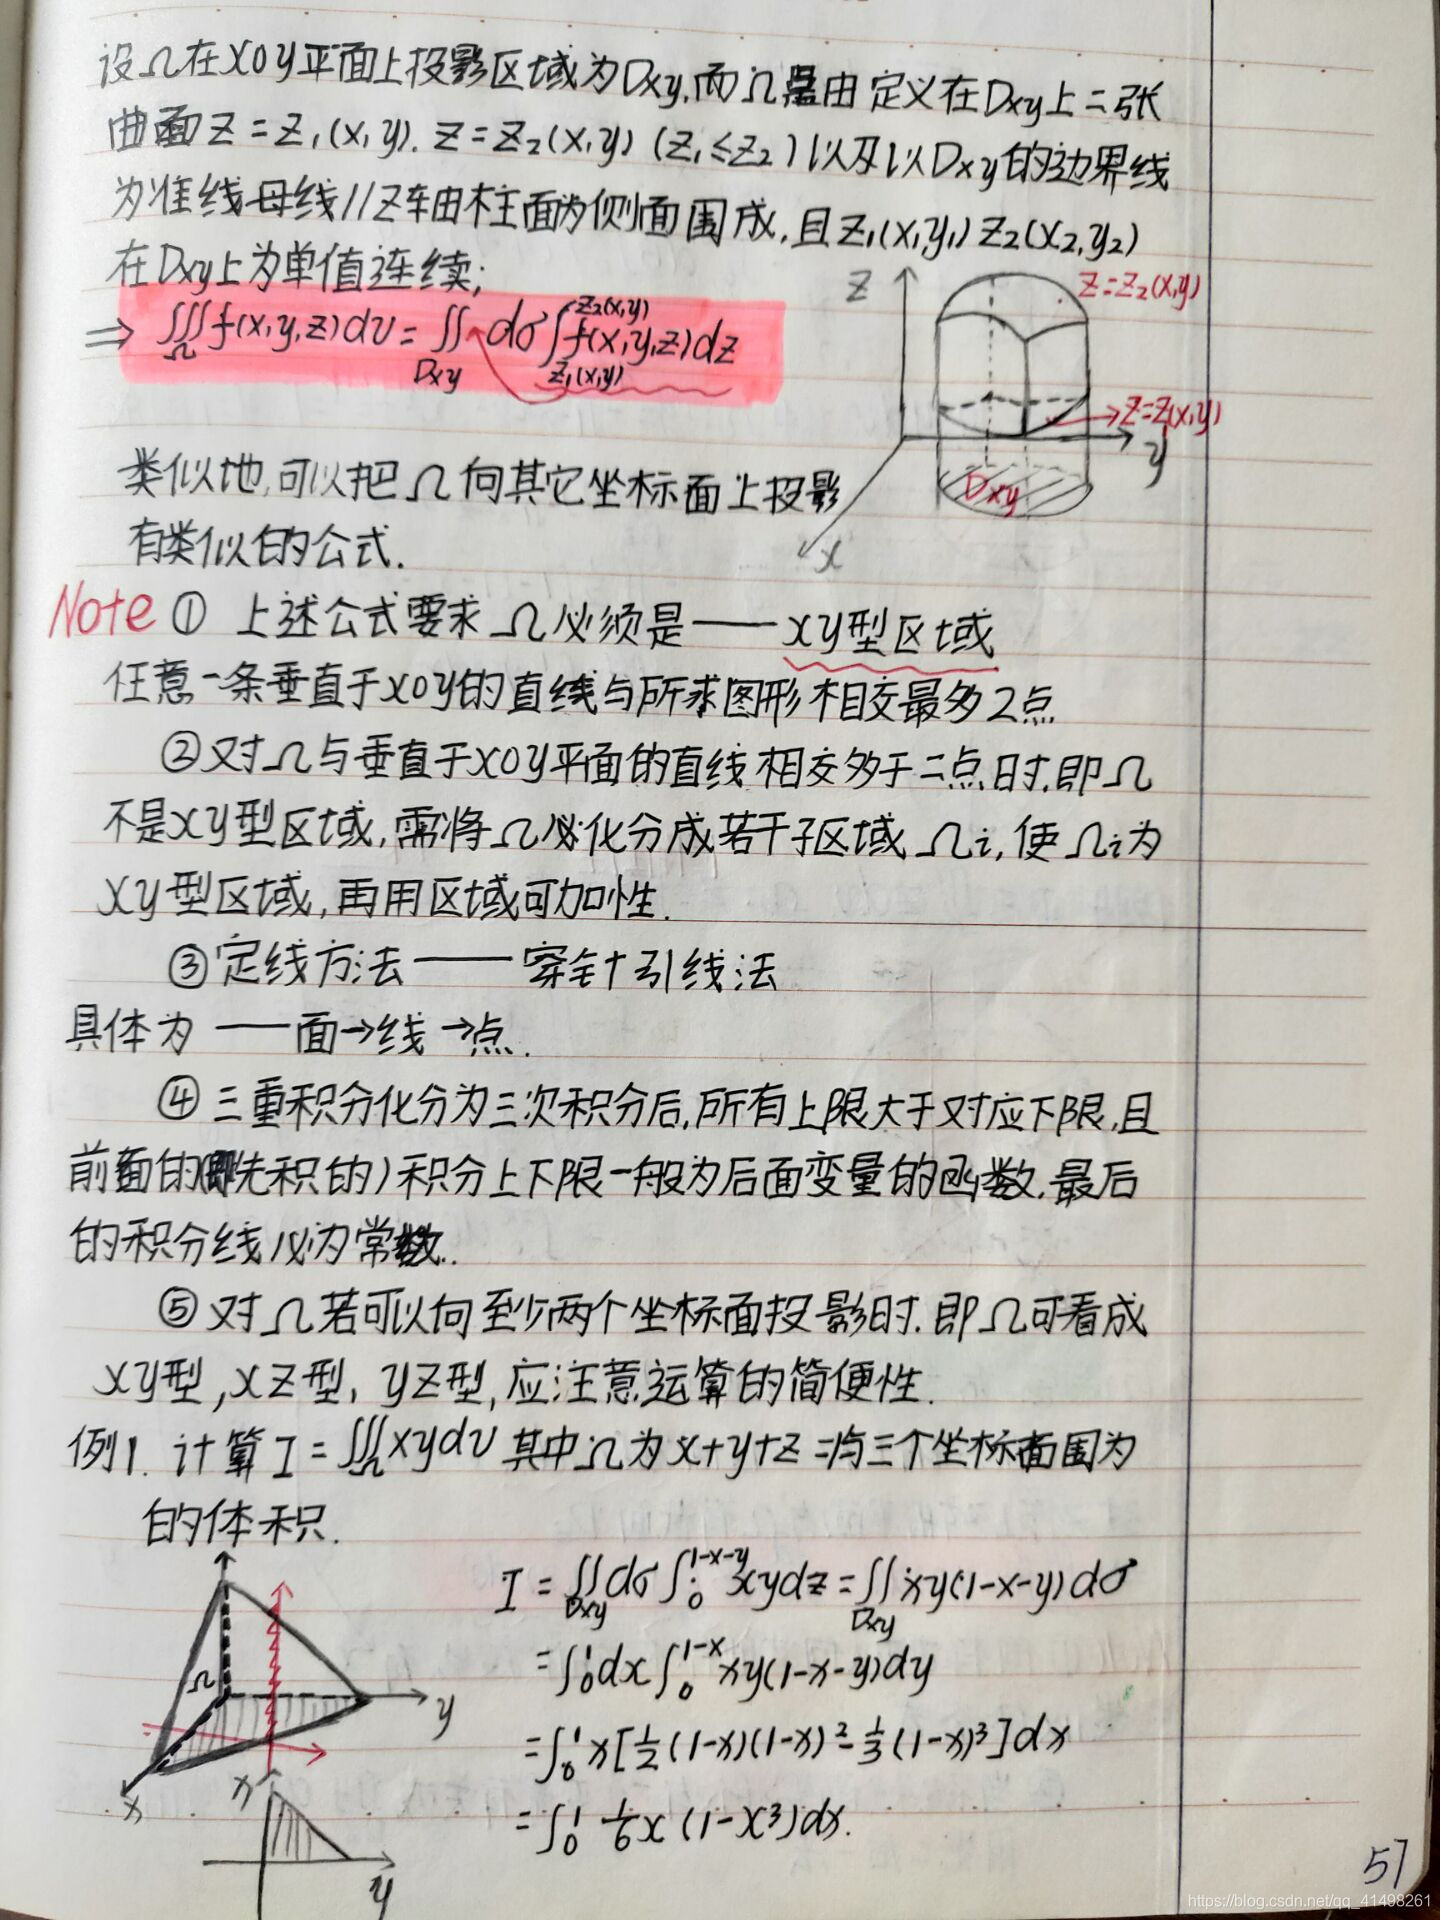 设Ω在XOY平面上投影区域为Dxy,而Ω是由定义在Dxy上二张
曲面Z=Z₁(x,y). Z=Z₂(x,y) (Z₁≤Z₂)以及以Dxy的边界线
为准线母线//Z轴柱面为侧面围成,且Z₁(x₁,y₁) Z₂(x₂,y₂)
在Dxy上为单值连续;
⇒ ∭_Ω f(x,y,z)dv=∬_Dxy dσ∫_{z₁(x,y)}^{z₂(x,y)} f(x,y,z)dz
Z
Z=Z₂(x,y)
Z=Z₁(x,y)
y
Dxy
x
类似地,可以把Ω向其它坐标面上投影
有类似的公式.
Note ① 上述公式要求Ω必须是——xy型区域
任意一条垂直于XOY的直线与所求图形相交最多2点
②对Ω与垂直于XOY平面的直线相交多于二点时.即Ω
不是XY型区域,需将Ω化分成若干子区域Ωi,使Ωi为
XY型区域,再用区域可加性.
③定线方法——穿针引线法
具体为——面→线→点.
④三重积分化分为三次积分后,所有上限大于对应下限,且
前面的(即先积的)积分上下限一般为后面变量的函数.最后
的积分线必为常数.
⑤对Ω若可以向至少两个坐标面投影时.即Ω可看成
XY型,XZ型,YZ型,应注意运算的简便性.
例1. 计算I=∭_Ω xydv 其中Ω为x+y+z=1与三个坐标面围为
的体积.
Ω
y
x
x
y
I=∬_Dxy dσ∫_0^{1-x-y} xydz=∬_Dxy xy(1-x-y)dσ
=∫_0^1 dx∫_0^{1-x} xy(1-x-y)dy
=∫_0^1 x[½(1-x)(1-x)²-⅓(1-x)³]dx
=∫_0^1 ⅙x(1-x³)dx.
57
https://blog.csdn.net/qq_41498261